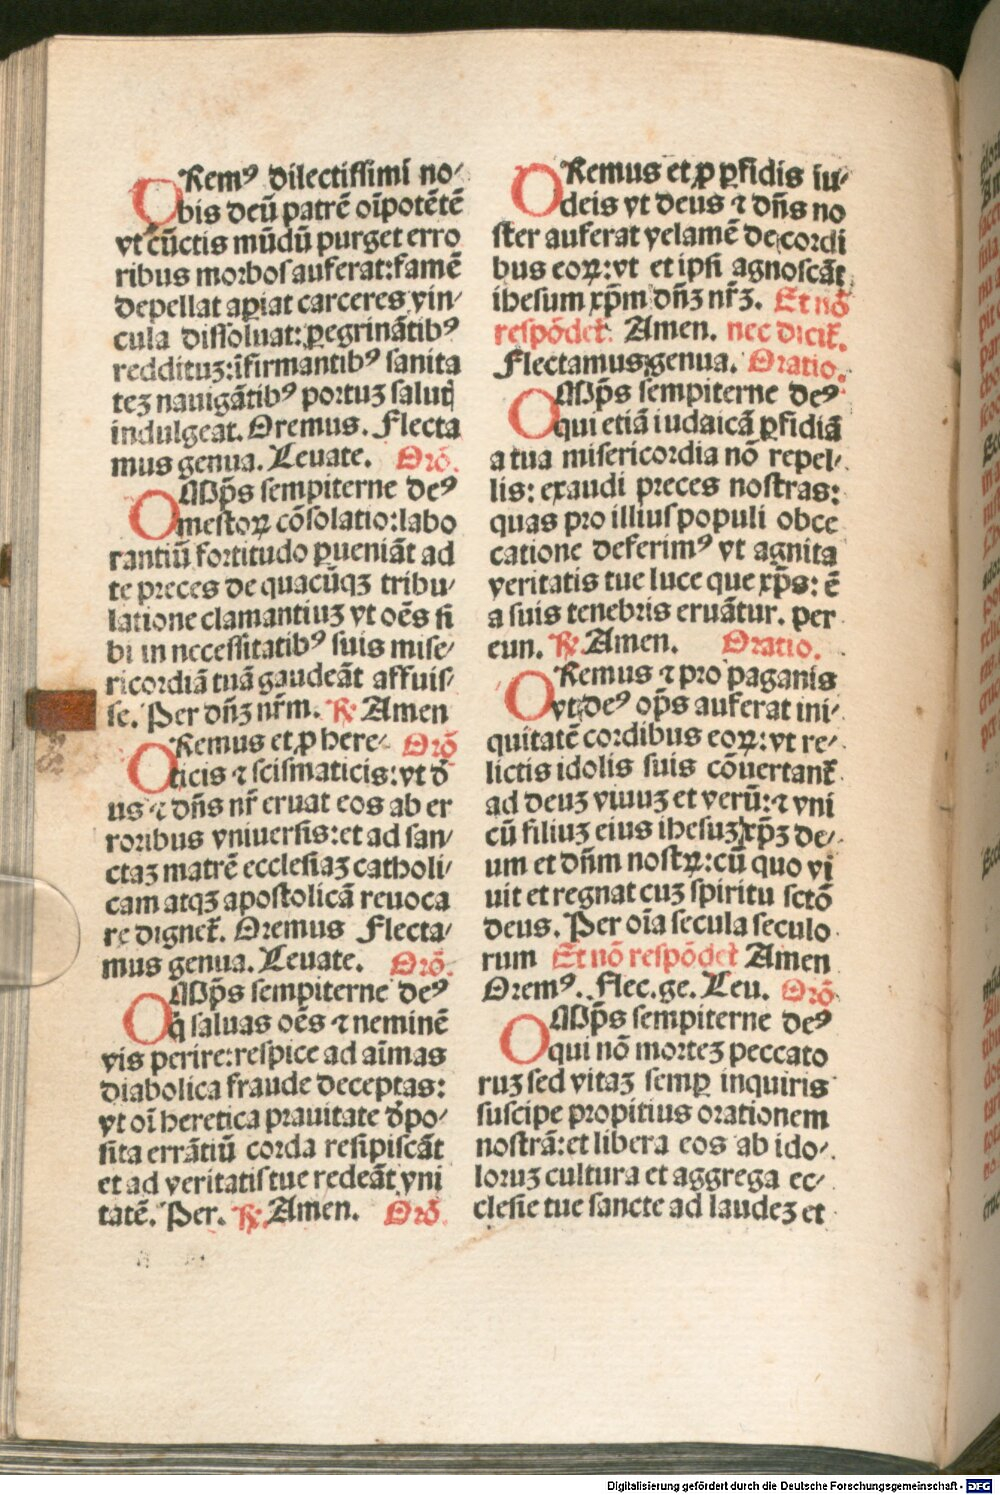 ORemꝰ dilectissimi no⸗
bis deū patrē oīpotētē
vt cūctis mūdū purget erro
ribus morbos auferat: famē
depellat aꝑiat carceres vin⸗
cula dissoluat: ꝑegrinātibꝰ
reddituꝫ: īfirmantibꝰ sanita
teꝫ nauigātibꝰ portuꝫ salut
indulgeat. Oremus. Flecta
mus genua. Leuate. Orō.
OMp̄s sempiterne deꝰ
mestoꝝ cōsolatio: labo
rantiū fortitudo ꝑueniāt ad
te preces de quacūqꝫ tribu⸗
latione clamantiuꝫ vt oēs si
bi in necessitatibꝰ suis mise⸗
ricordiā tuā gaudeāt affuis⸗
se. Per dn̄ꝫ nr̄m. ℟. Amen
ORemus et ꝓ here⸗ Orō
ticis ⁊ scismaticis: vt d̓
us ⁊ dn̄s nr̄ eruat eos ab er
roribus vniuersis: et ad san⸗
ctaꝫ matrē ecclesiaꝫ catholi⸗
cam atqꝫ apostolicā reuoca
re dignet᷑. Oremus Flecta⸗
mus genua. Leuate. Orō.
OMp̄s sempiterne deꝰ
q̇ saluas oēs ⁊ neminē
vis perire: respice ad aīmas
diabolica fraude deceptas:
vt oī heretica prauitate d̓po⸗
sita errātiū corda resipiscāt
et ad veritatis tue redeāt vni
tatē. Per. ℟. Amen. Orō.
ORemus et ꝓ ꝑfidis iu⸗
deis vt deus ⁊ dn̄s no
ster auferat velamē de cordi
bus eoꝝ: vt et ipsi agnoscāt
ihesum xp̄m dn̄ꝫ nr̄ꝫ. Et nō
respōdet᷑. Amen. nec dicit᷑.
Flectamus genua. Oratio.
OMp̄s sempiterne deꝰ
qui etiā iudaicā ꝑfidiā
a tua misericordia nō repel⸗
lis: exaudi preces nostras:
quas pro illius populi obce
catione deferimꝰ vt agnita
veritatis tue luce que xp̄s: ē
a suis tenebris eruātur. per
eun. ℟. Amen. Oratio.
ORemus ⁊ pro paganis
vt deꝰ op̄s auferat ini⸗
quitatē cordibus eoꝝ: vt re⸗
lictis idolis suis cōuertant᷑
ad deuꝫ viuuꝫ et verū: ⁊ vni
cū filiuꝫ eius ihesuꝫ xp̄ꝫ de⸗
um et dn̄m nostꝝ: cū quo vi
uit et regnat cuꝫ spiritu sctō
deus. Per oīa secula seculo
rum Et nō respōdet᷑ Amen
Oremꝰ. Flec. ge. Leu. Orō
OMp̄s sempiterne deꝰ
qui nō morteꝫ peccato
ruꝫ sed vitaꝫ semꝑ inquiris
suscipe propitius orationem
nostrā: et libera eos ab ido⸗
loruꝫ cultura et aggrega ec⸗
clesie tue sancte ad laudeꝫ et
Digitalisierung gefördert durch die Deutsche Forschungsgemeinschaft - DFG